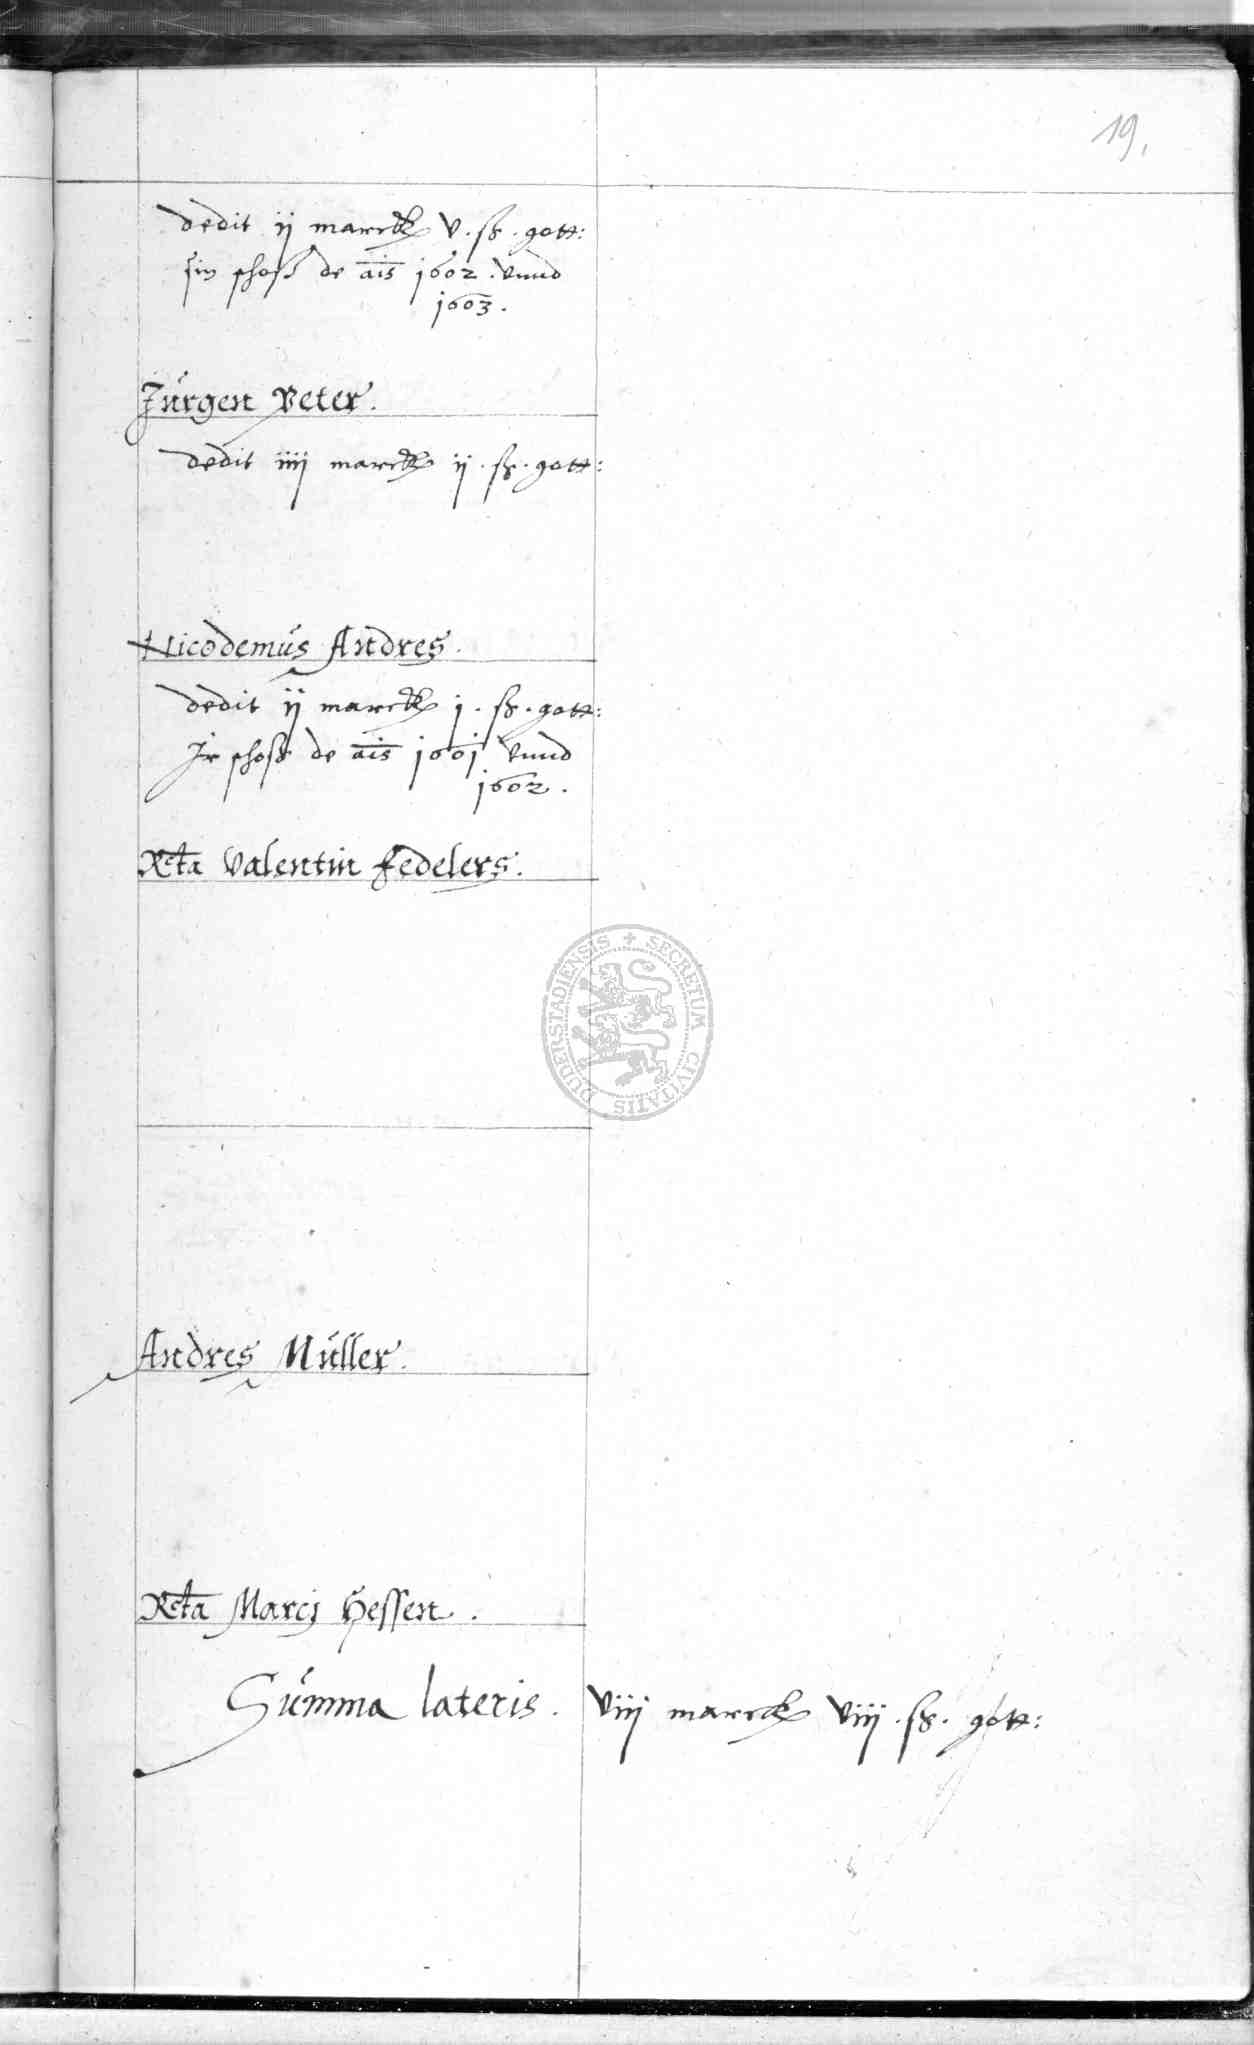 19.
dedit ij marck v. sß. gott:
sin schoß de ais 1602. vnnd
1603.
Jürgen Peter.
dedit iiij marck ij. sß. gott:
Nicodemus Andres.
dedit ij marck j. sß. gott:
Jr schoß de ais 1601 vnnd
1602.
Rcta Valentin Fedelers.
SECRETUM CIVITATIS DUDERSTADIENSIS
Andres Müller.
Rcta Marcj Hessen.
Summa lateris. viij marck viij. sß. gott: